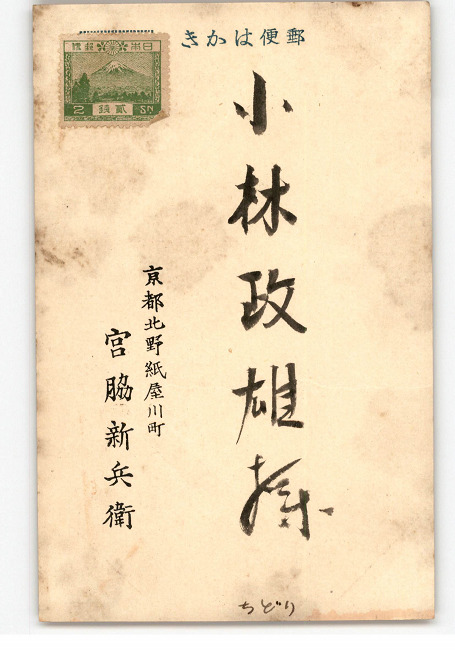 郵便はかき
日本郵便
2 貳銭 SN
小林政雄様
京都北野紙屋川町
宮脇新兵衛
ちどり